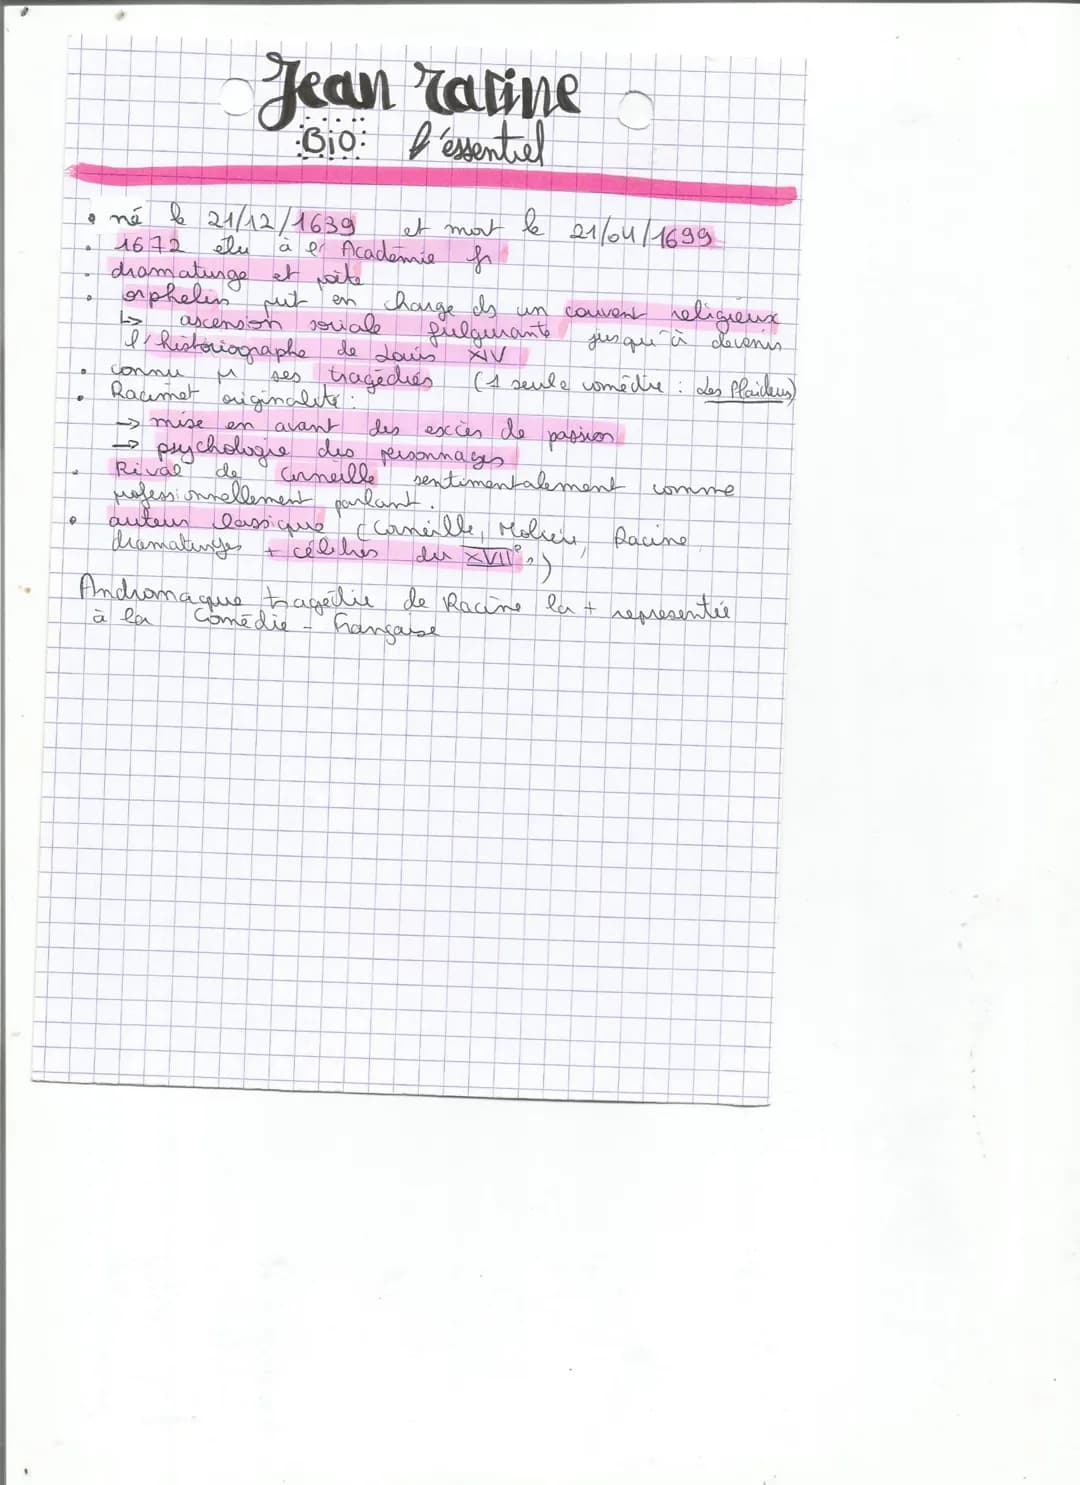 Jean racine
Bio: l'éssentiel
• né le 21/12/1639 et mort le 21/04/1699
• 1672 élu à l' Académie fr
• dramaturge et poète
• orphelin put en charge ds un couvent religieux
↳ ascension sociale fulgurante jusqu'à devenir
l'historiographe de Louis XIV
• connu pr ses tragédies (1 seule comédie : Les Plaideurs)
• Racinet originalité :
→ mise en avant des excès de passion
→ psychologie des personnages
• Rival de Corneille sentimentalement comme
professionnellement parlant.
• auteur classique (Corneille, Molière, Racine
dramaturges + célèbres du XVII°s)
Andromaque tragédie de Racine la + representée
à la Comédie - française